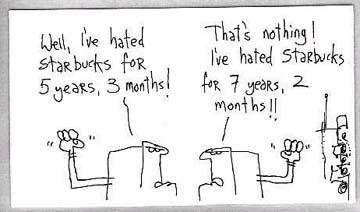 Well, I've hated
Starbucks for
5 years, 3 months!
That's nothing!
I've hated Starbucks
for 7 years, 2
months!!